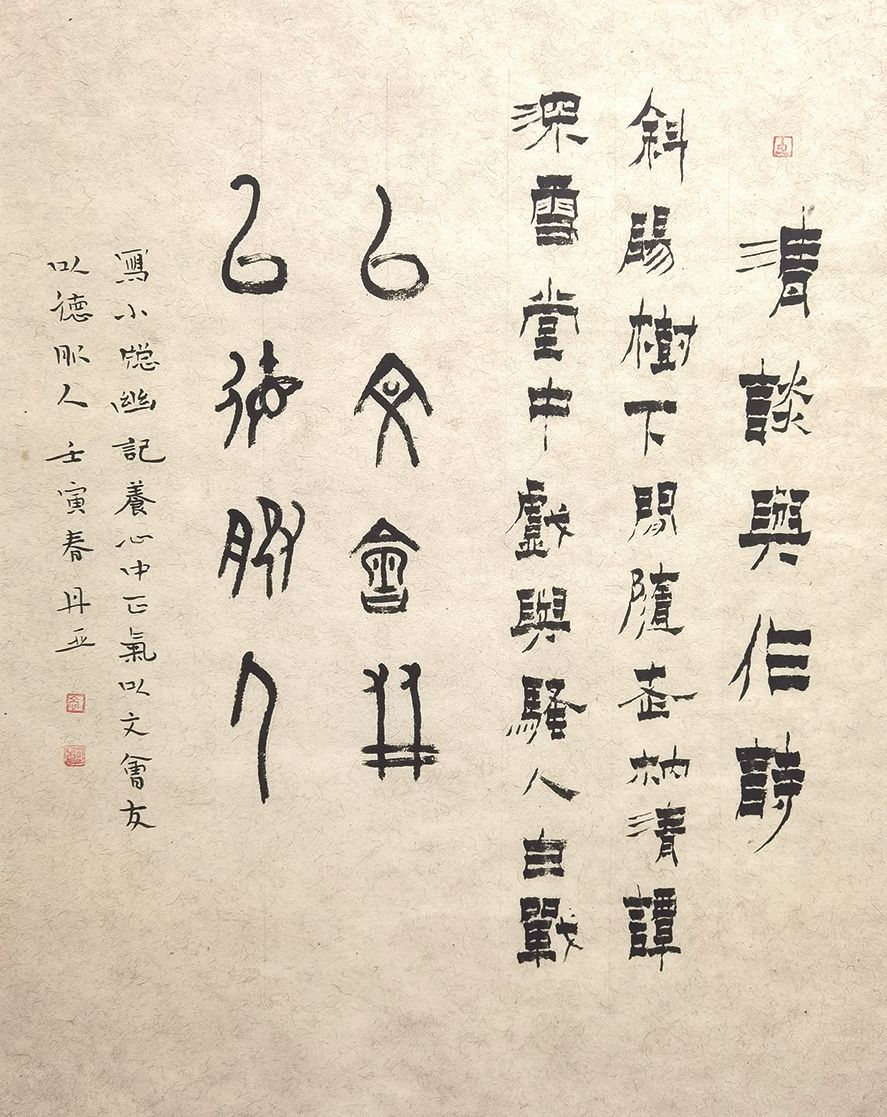 清談與作詩
斜陽樹下閒隨老衲清譚
深雪堂中戲與騷人白戰
以文會友
以德服人
寫小牕幽記養心中正氣以文會友
以德服人壬寅春丹亚